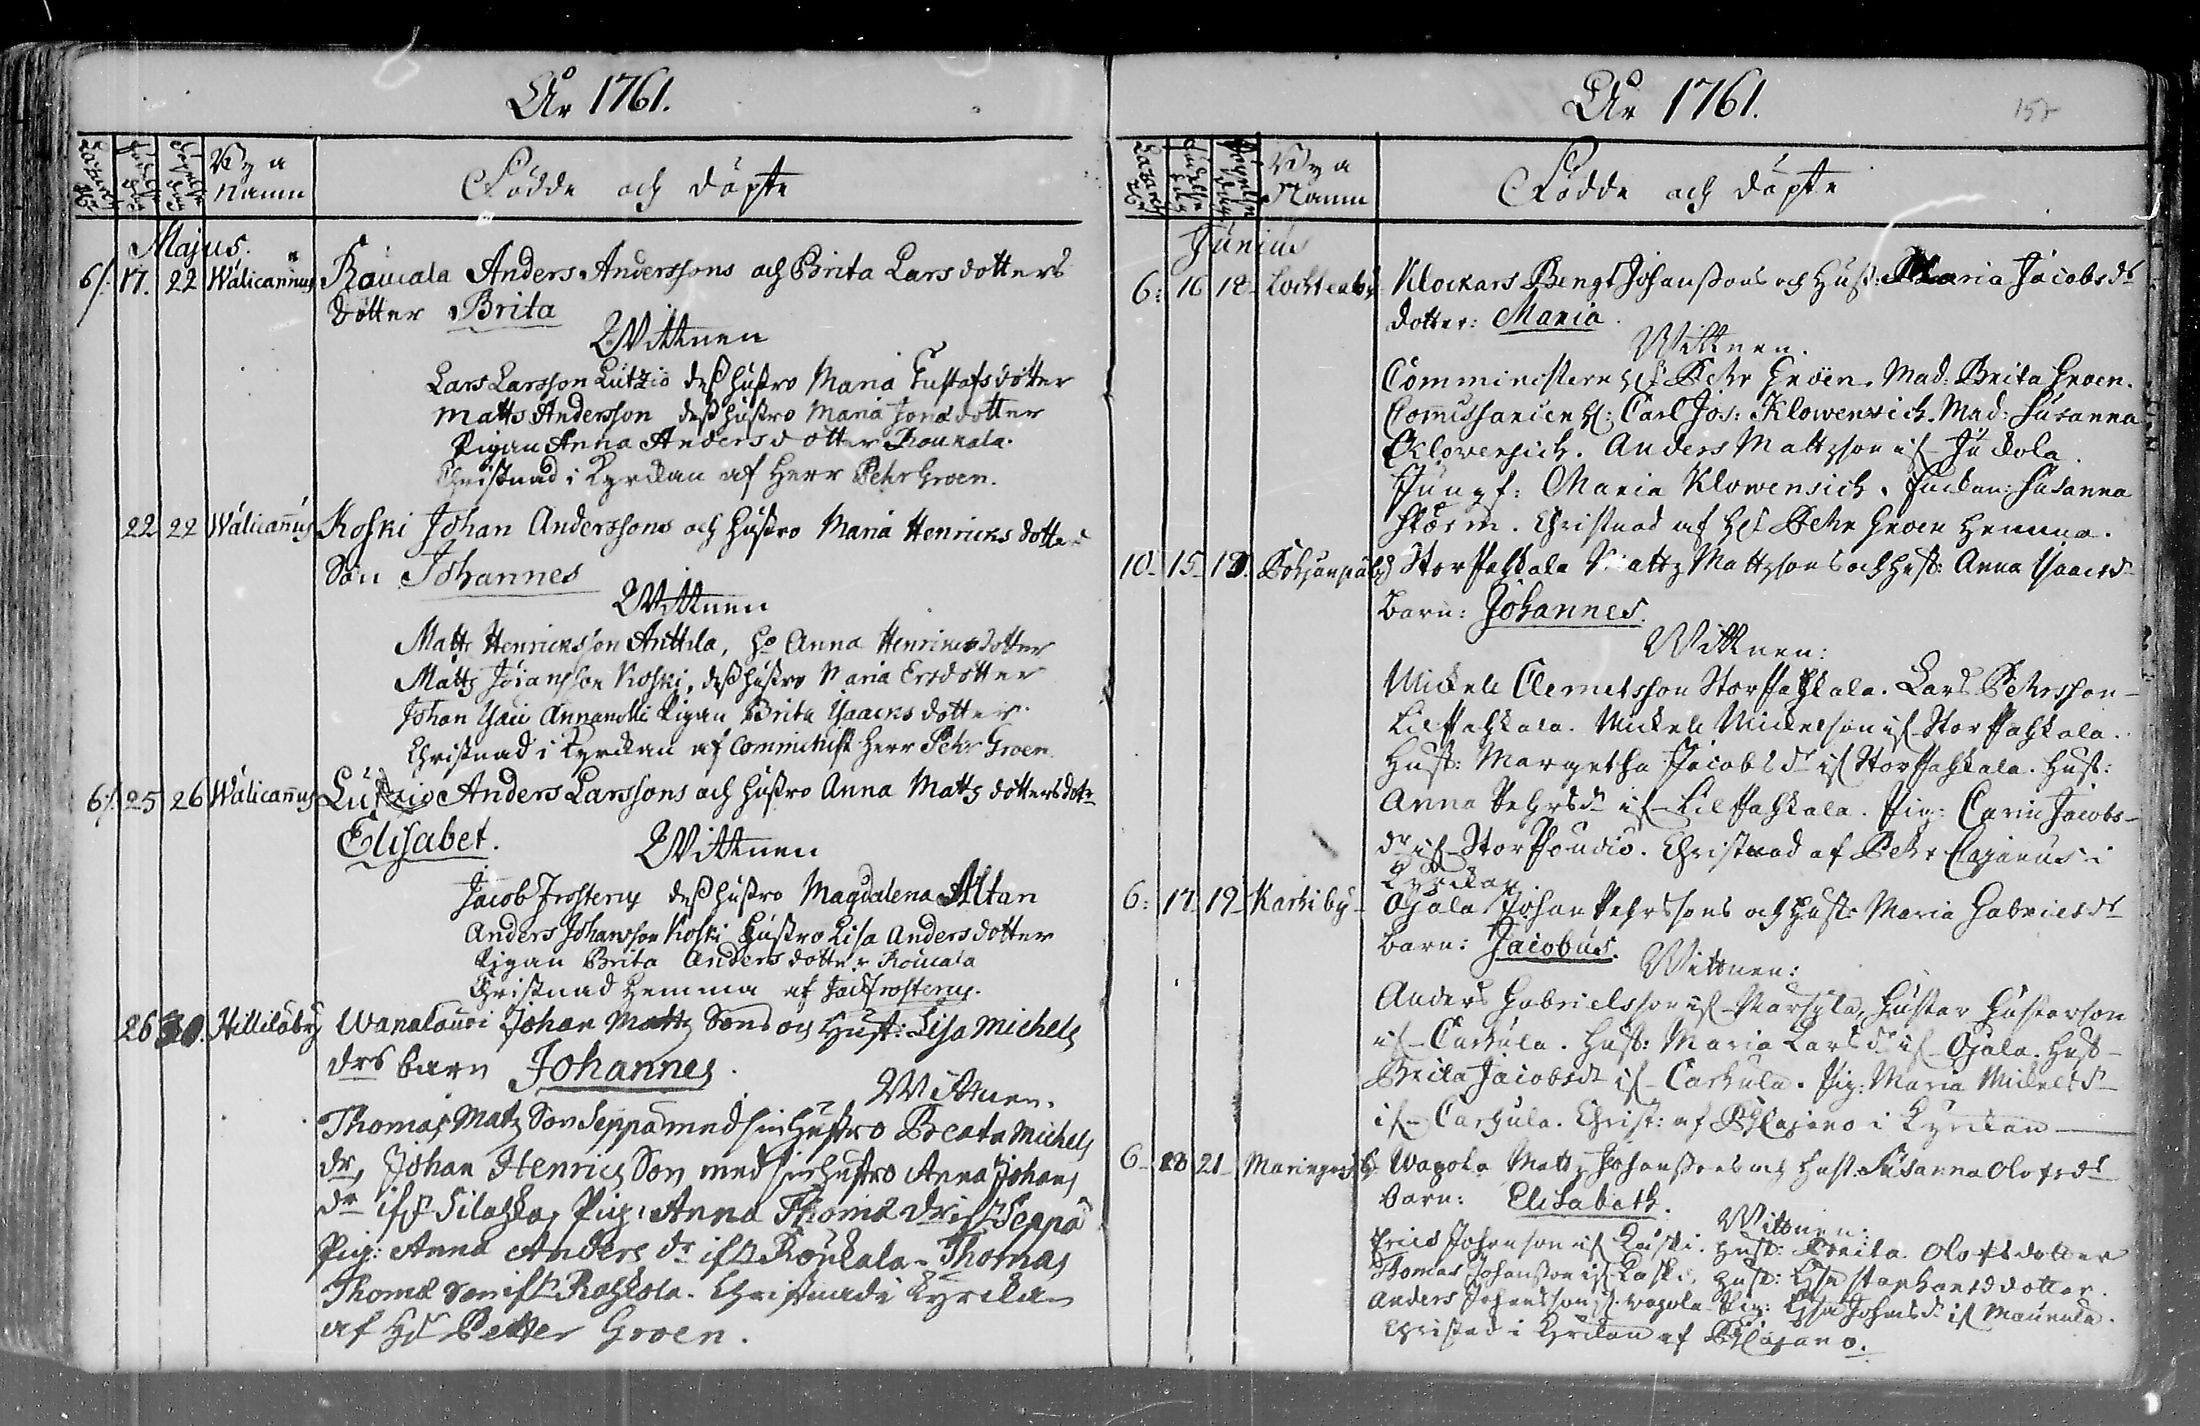 År 1761.
Bya Namn
Födde och döpte
Majus.
6/. 17. 22 Wälicannus Raucala Anders Anderssons och Brita Larsdotters
dotter Brita
Wittnen
Lars Larsson Lutzio deß hustro Maria Gustafsdotter
Matts Andersson deß hustro Maria Jonædotter
Pigan Anna Andersdotter Roukala.
Christnad i Kyrckan af Herr Pehr Groen.
22 22 Wälicannus Koski Johan Anderssons och hustro Maria Henrics dotters
Son Johannes
Wittnen
Matts Henricksson Anttila, ho Anna Henricsdotter
Matts Johansson Koski, deß hustro Maria Ersdotter
Johan Isaci Annanolli Pigan Brita Isaacks dotter.
Christnad i Kyrckan af Comminist Herr Pehr Groen
6/. 25 26 Wälicannus Lutzio Anders Larssons och hustro Anna Matts dotters dotr
Elisabet.
Wittnen
Jacob Frosterus deß hustro Magdalena Altan
Anders Johansson Koski hustro Lisa Andersdotter
Pigan Brita Anders dotter Roucala
Christnad hemma af Jac Frosterus.
26 30. Hilliläby Wanalouri Johan Matts Sons och Hust: Lisa Michels
drs barn Johannes.
Wittnen.
Thomas Mats Son Seppä med sin Hustro Beata Michels
dr, Johan Henrics Son med sin hustro Anna Johans
dr if Silahka, Pig: Anna Thomæ dr if Seppä
Pig: Anna Anders dr if Roukala. Thomas
Thomæ Son if Rahkola. Christnade i Kyrcka
af Hr Petter Groen.
År 1761.
Bya Namn
Födde och döpte
Junius
6: 16 18 Lochteaby Klockars Bengt Johanßons och Hust: Maria Jacobsdr
dotter: Maria.
Wittnen.
Comministern Hr Pehr Groën. Mad. Brita Groen.
Commissarien H: Carl Jos: Klowensich. Mad: Susanna
Klowensich. Anders Mattzson if Juckola.
Jungf: Maria Klowensich. Susanna
Storm. Christnad af Hr Pehr Groen hemma.
10 15 Storpahkala Matts Mattssons och Hust: Anna Isacsdr
barn: Johannes.
Wittnen:
Mickell Clemetsson Storpahkala. Lars Pehrsson
Lillpahkala. Mickell Mickelson if Storpahkala.
Hust: Margetha Jacobsdr if Storpahkala. Hust:
Anna Pehrsdr if Lillpahkala. Pig: Carin Jacobs-
dr if Storpoudio. Christnad af Pehr Cajanus i
Kyrckan
6: 17 19 Karhiby Ojala Johan Pehrssons och Hust: Maria Gabrielsdr
barn: Jacobus.
Wittnen:
Anders Gabrielsson if Marsyla, Gustav Gustavson
if Carhula. Hust: Maria Larsdr if Ojala. Hust
Brita Jacobsdr if Carhula. Pig: Maria Mickelsdr
if Carhula. Christ: af P Cajano i Kyrckan
6 20 21 Wapola Matts Johanßons och Hust. Susanna Olofsdr
barn: Elisabeth.
Wittnen:
Erick Johanson if Kaski. Hust: Brita Olofsdotter
Thomas Johanßon if Kaski, Hust: Lisa Staphansdotter.
Anders Johansson if Wapola. Pig: Lisa Johansdr if Maunula.
Christnad i Kyrckan af P Cajano.